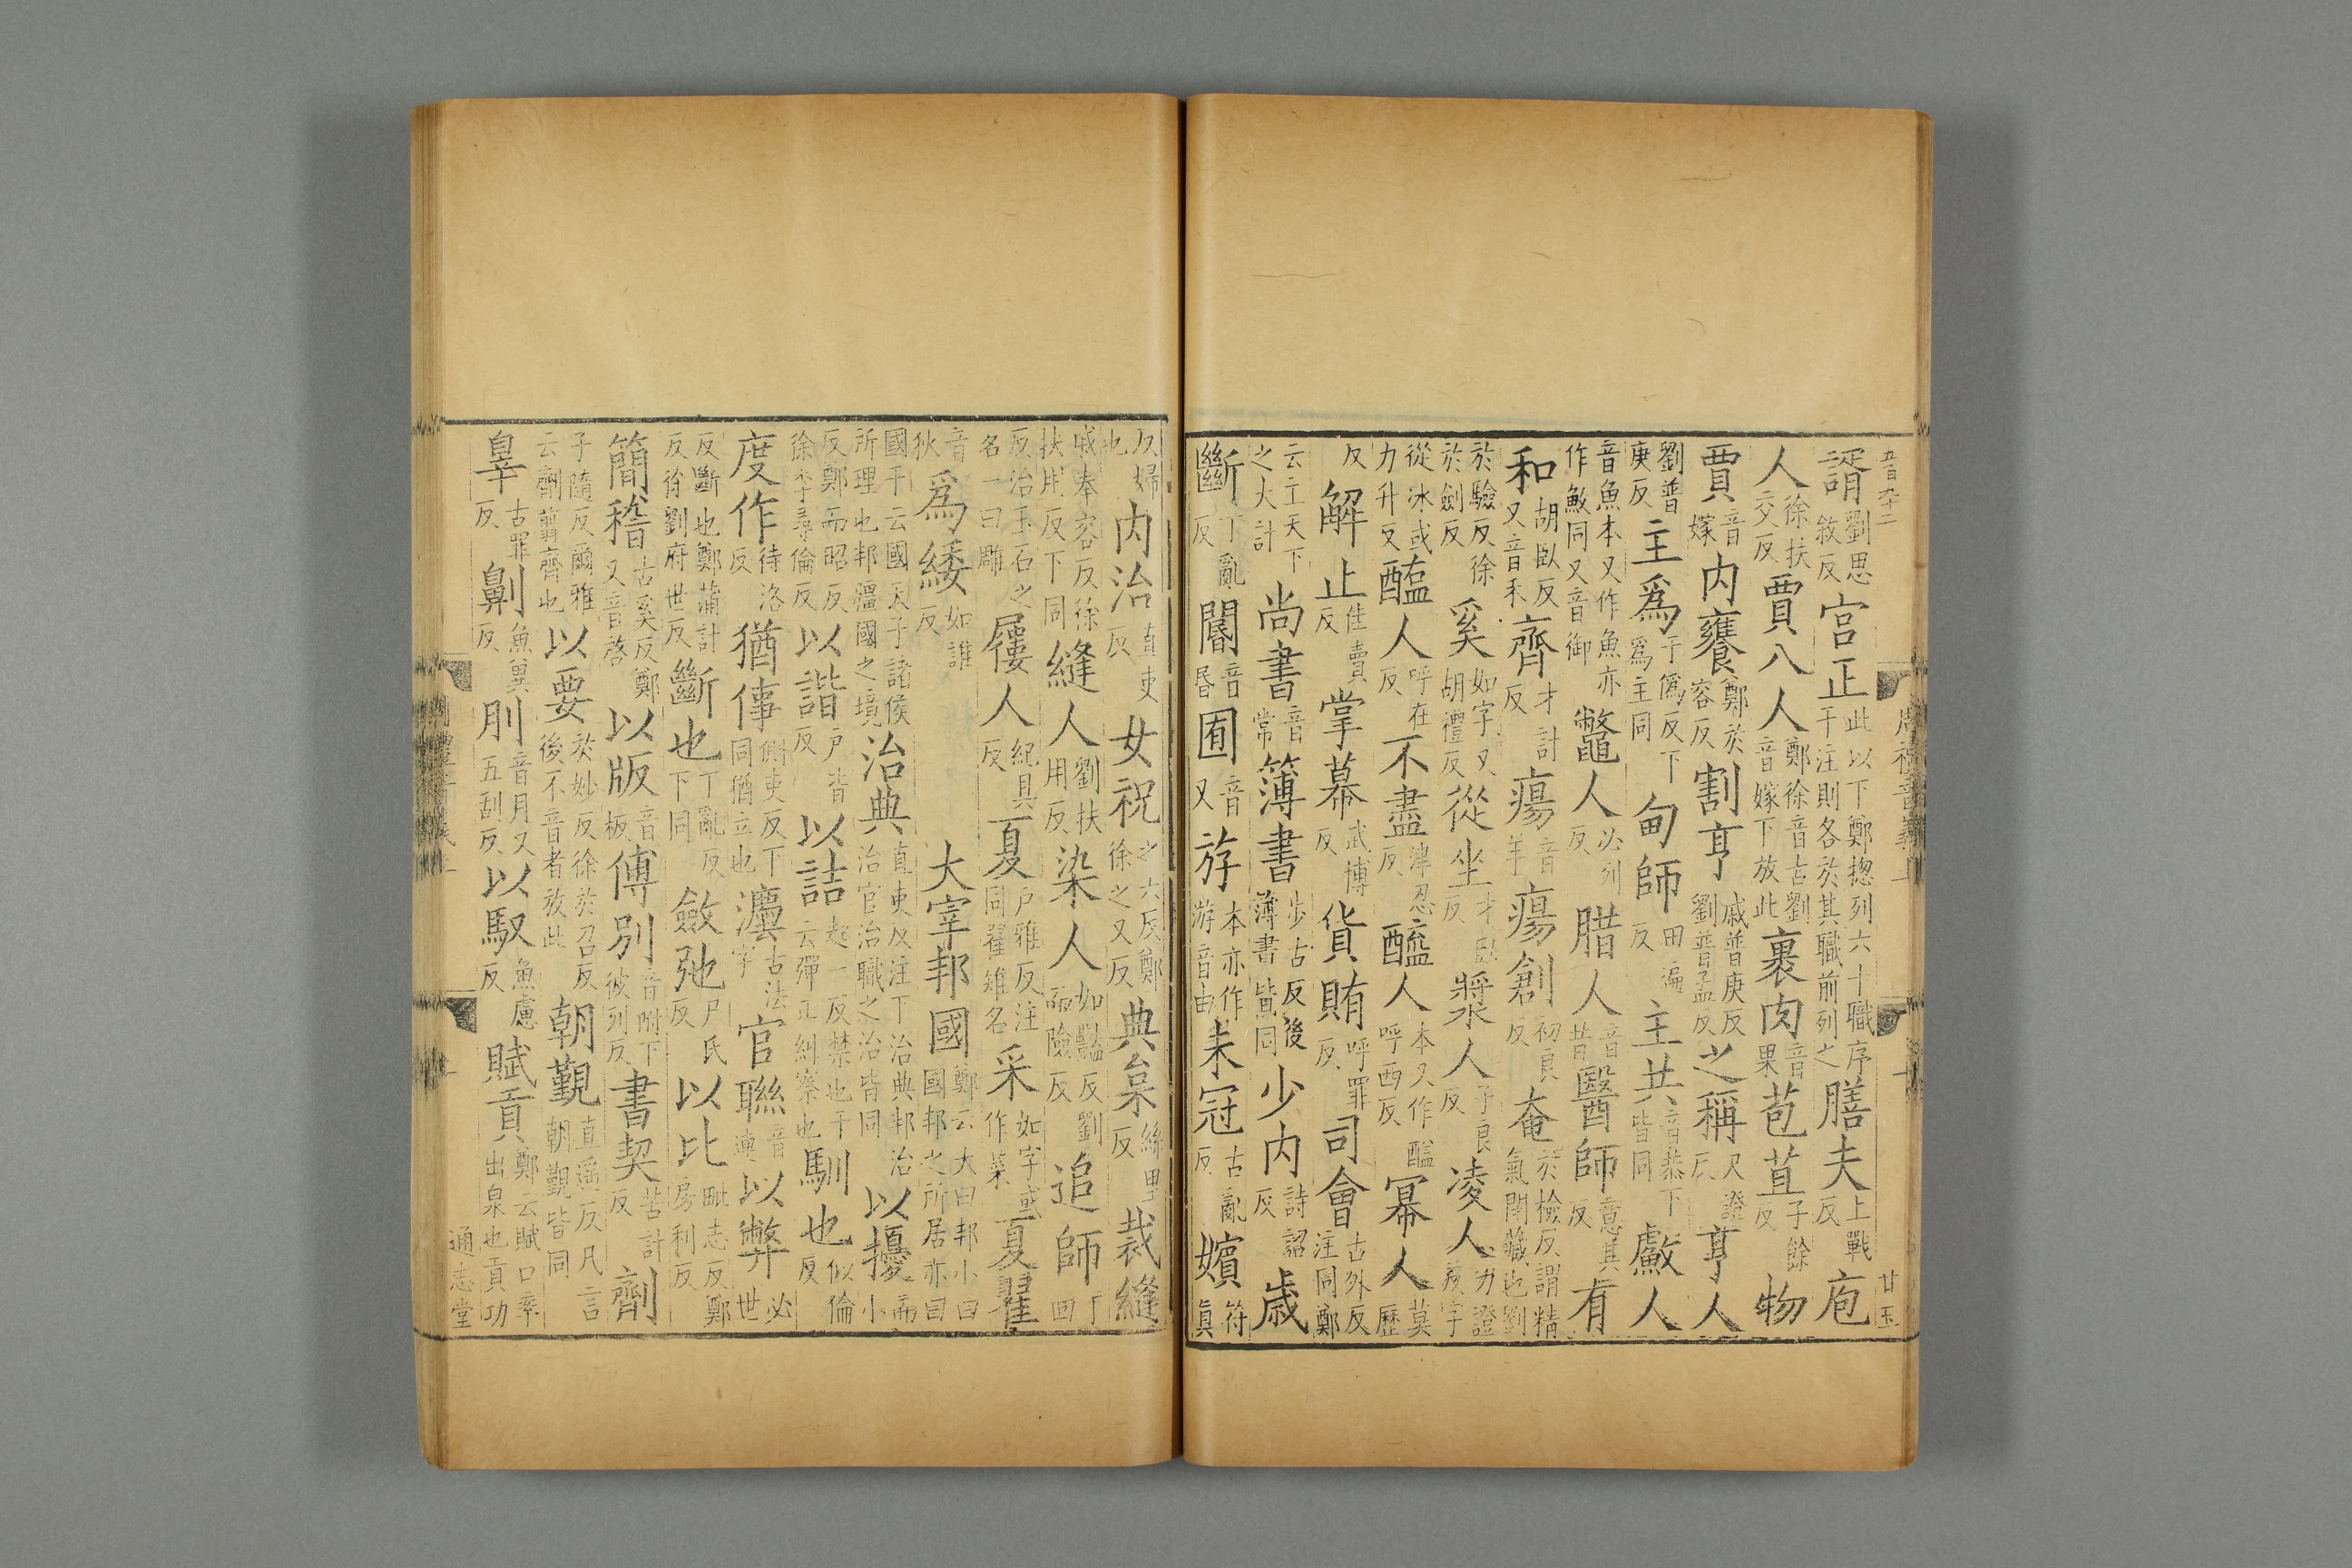 五百九十二
諝劉思敘反宮正此以下鄭揔列六十職序干注則各於其職前列之膳夫上戰反庖
人徐扶交反賈八人鄭徐音古劉音嫁下放此裹肉音果苞苴子餘反物
賈音嫁內饔鄭於容反割亨戚普庚反劉普孟反之稱尺證反亨人
劉普庚反主爲于僞反下爲主同甸師田遍反主共音恭下皆同㱃人
音魚本又作魚亦作䱷同又音御鼈人必列反腊人音昔醫師意其反有
和胡臥反又音禾齊才計反瘍音羊瘍創初良反奄於檢反謂精氣閉藏也劉
於驗反徐於劍反奚如字又胡禮反從坐才臥反漿人子良反凌人力證反字
從冰或力升反醢人呼在反不盡津忍反醯人本又作䤈呼西反冪人莫歷
反解止佳賣反掌幕武博反貨賄呼罪反司會古外反注同鄭
云主天下之大計尚書音常簿書步古反後簿書皆同少內詩詔反歲
斷丁亂反閽音昏囿音又游本亦作游音由未冠古亂反嬪符眞
反婦也內治直吏反女祝之六反鄭徐之又反典枲絲里反裁縫
戚奉容反徐扶用反下同縫人劉扶用反染人如豔反劉而險反追師丁回
反治玉石之名一曰雕屨人紀具反夏戶雅反注同翟雉名采如字或作菜夏翟
音狄爲緌如誰反
大宰邦國鄭云大曰邦小曰國邦之所居亦曰
國干云國天子諸侯所理也邦疆國之境治典直吏反注下治典邦治治官治職之治皆同以擾而小
反鄭而昭反徐李尋倫反以諧戶皆反以詰起一反禁也干云彈正糾察也馴也似倫反
度作待洛反猶傳側吏反下同猶立也灋古法字官聯音連以弊必世
反斷也鄭蒲計反徐劉府世反斷也丁亂反下同斂弛尸氏反以比毗志反鄭房利反
簡稽古奚反鄭又音啓以版音板傅別音附下彼列反書契苦計反劑
子隨反爾雅云劑翦齊也以要於妙反徐於召反後不音者放此朝覲直遥反凡言朝覲皆同
辠古罪反劓魚異反刖音月又五刮反以馭魚慮反賦貢鄭云賦口率出泉也貢功
通志堂